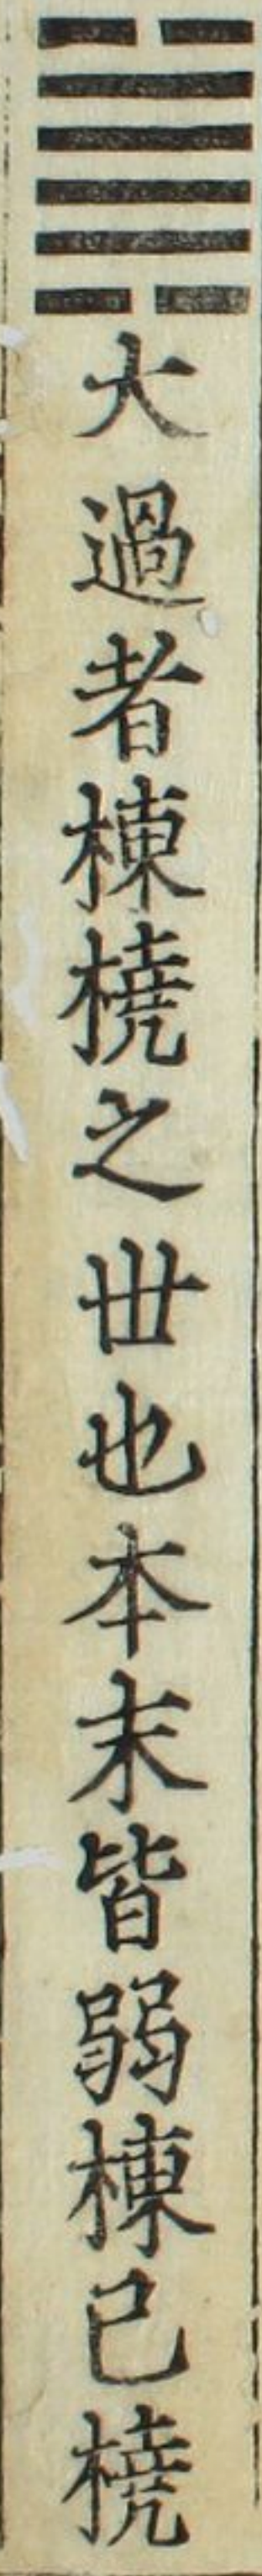 ䷛大過者棟橈之丗也本末皆弱棟已橈